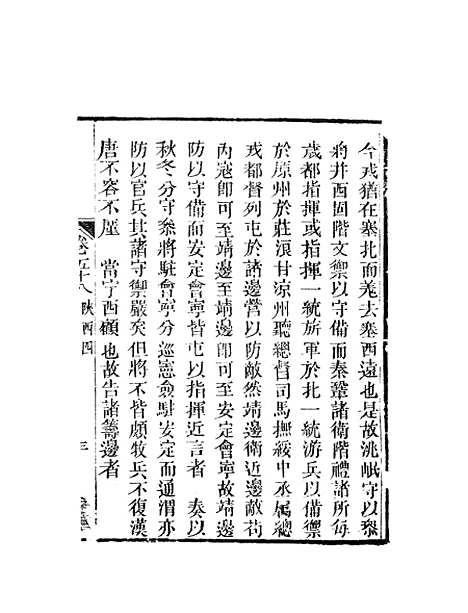 今戎猶在塞北而羗去塞西遠也是故洮岷守以叅
將井西固階文禦以守備而秦鞏諸衛階禮諸所每
歲都指揮或指揮一統旂軍於北一統游兵以備禦
於原州於莊浪甘凉州聽總督司馬撫綏中丞属總
戎都督列屯於諸邊營以防敵然靖邊衛近邊敵苟
内寇卽可至靖邊至靖邊卽可至安定會寧故靖邊
防以守備而安定會寧皆屯以指揮近言者 奏以
秋冬分守叅將駐會寧分巡憲僉駐安定而通渭亦
防以官兵其諸守禦嚴矣但將不皆頗牧兵不復漢
唐不容不廑 當宁西顧也故告諸籌邊者
卷七五十八 陜西四 三